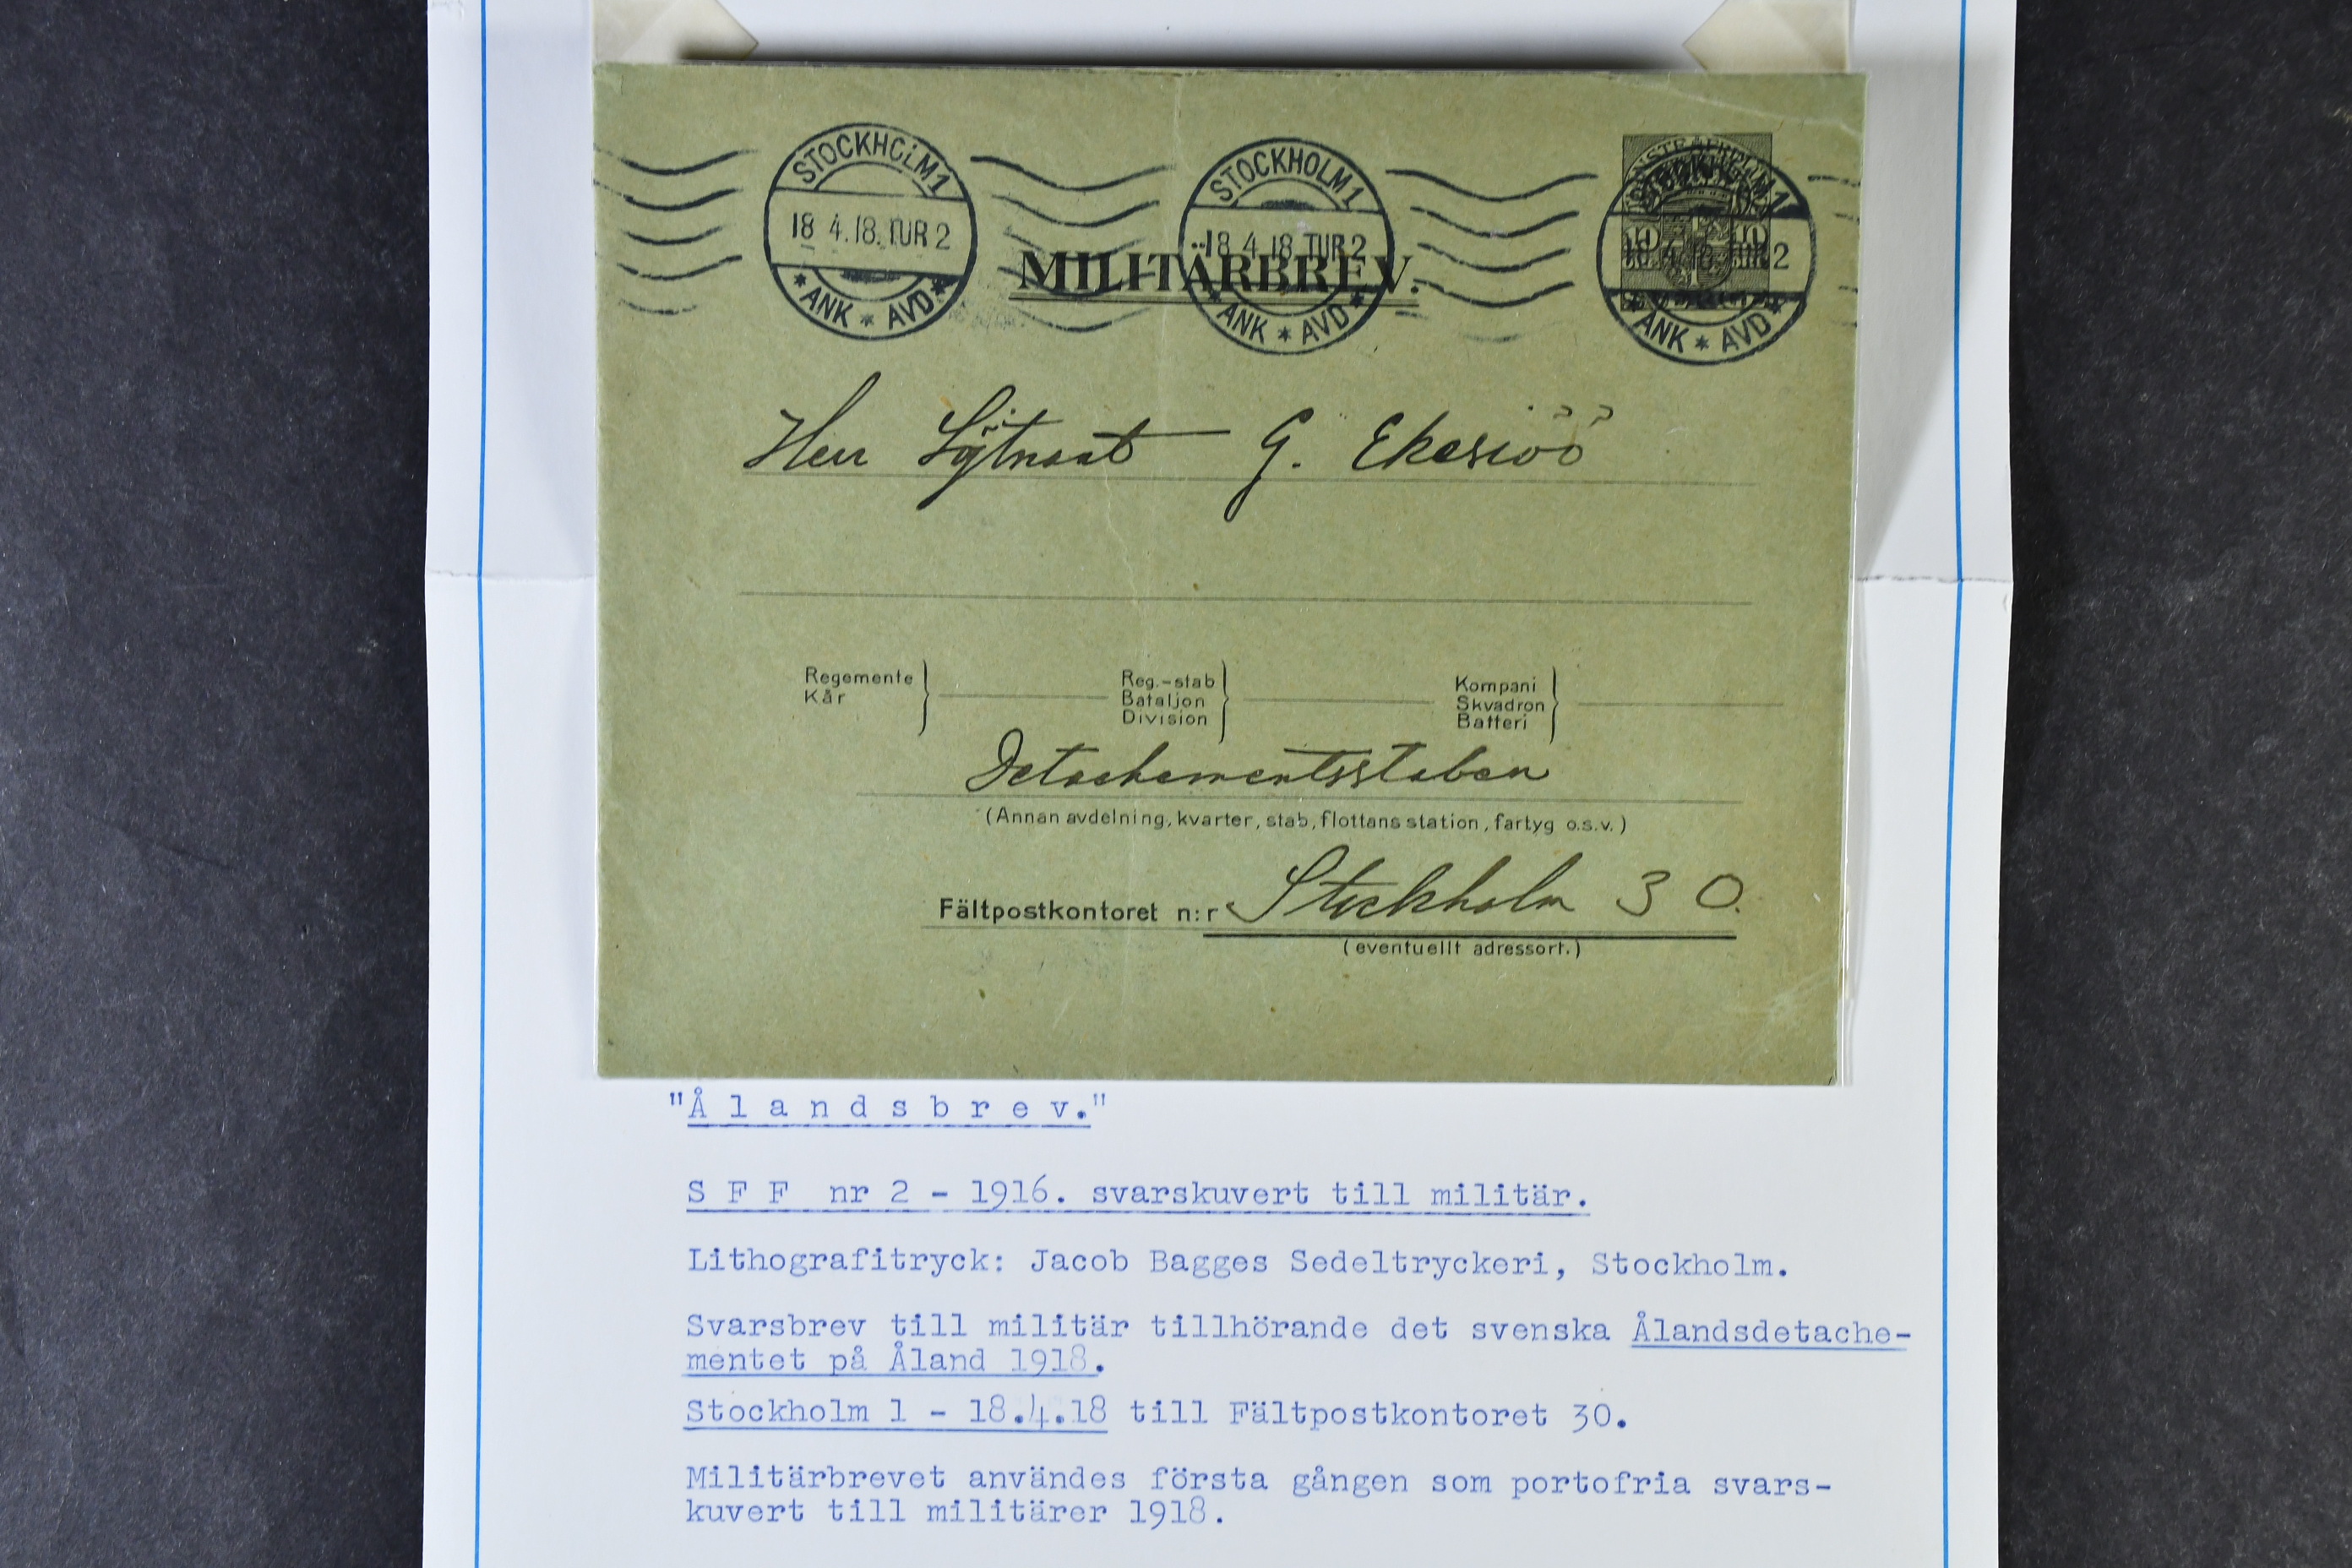 STOCKHOLM 1
18 4.18. TUR 2
* ANK * AVD *
STOCKHOLM 1
18 4.18. TUR 2
* ANK * AVD *
10 10
18. 4.18. TUR 2
* ANK * AVD *
MILITÄRBREV.
Herr Löjtnant G. Ekesiöö
Regemente
Kår
Reg.-stab
Bataljon
Division
Kompani
Skvadron
Batteri
Detachementsstaben
(Annan avdelning, kvarter, stab, flottans station, fartyg o.s.v.)
Fältpostkontoret n:r Stockholm 30.
(eventuellt adressort.)
"Ålandsbrev."
SFF nr 2 - 1916. svarskuvert till militär.
Lithografitryck: Jacob Bagges Sedeltryckeri, Stockholm.
Svarsbrev till militär tillhörande det svenska Ålandsdetache-
mentet på Åland 1918.
Stockholm 1 - 18.4.18 till Fältpostkontoret 30.
Militärbrevet användes första gången som portofria svars-
kuvert till militärer 1918.